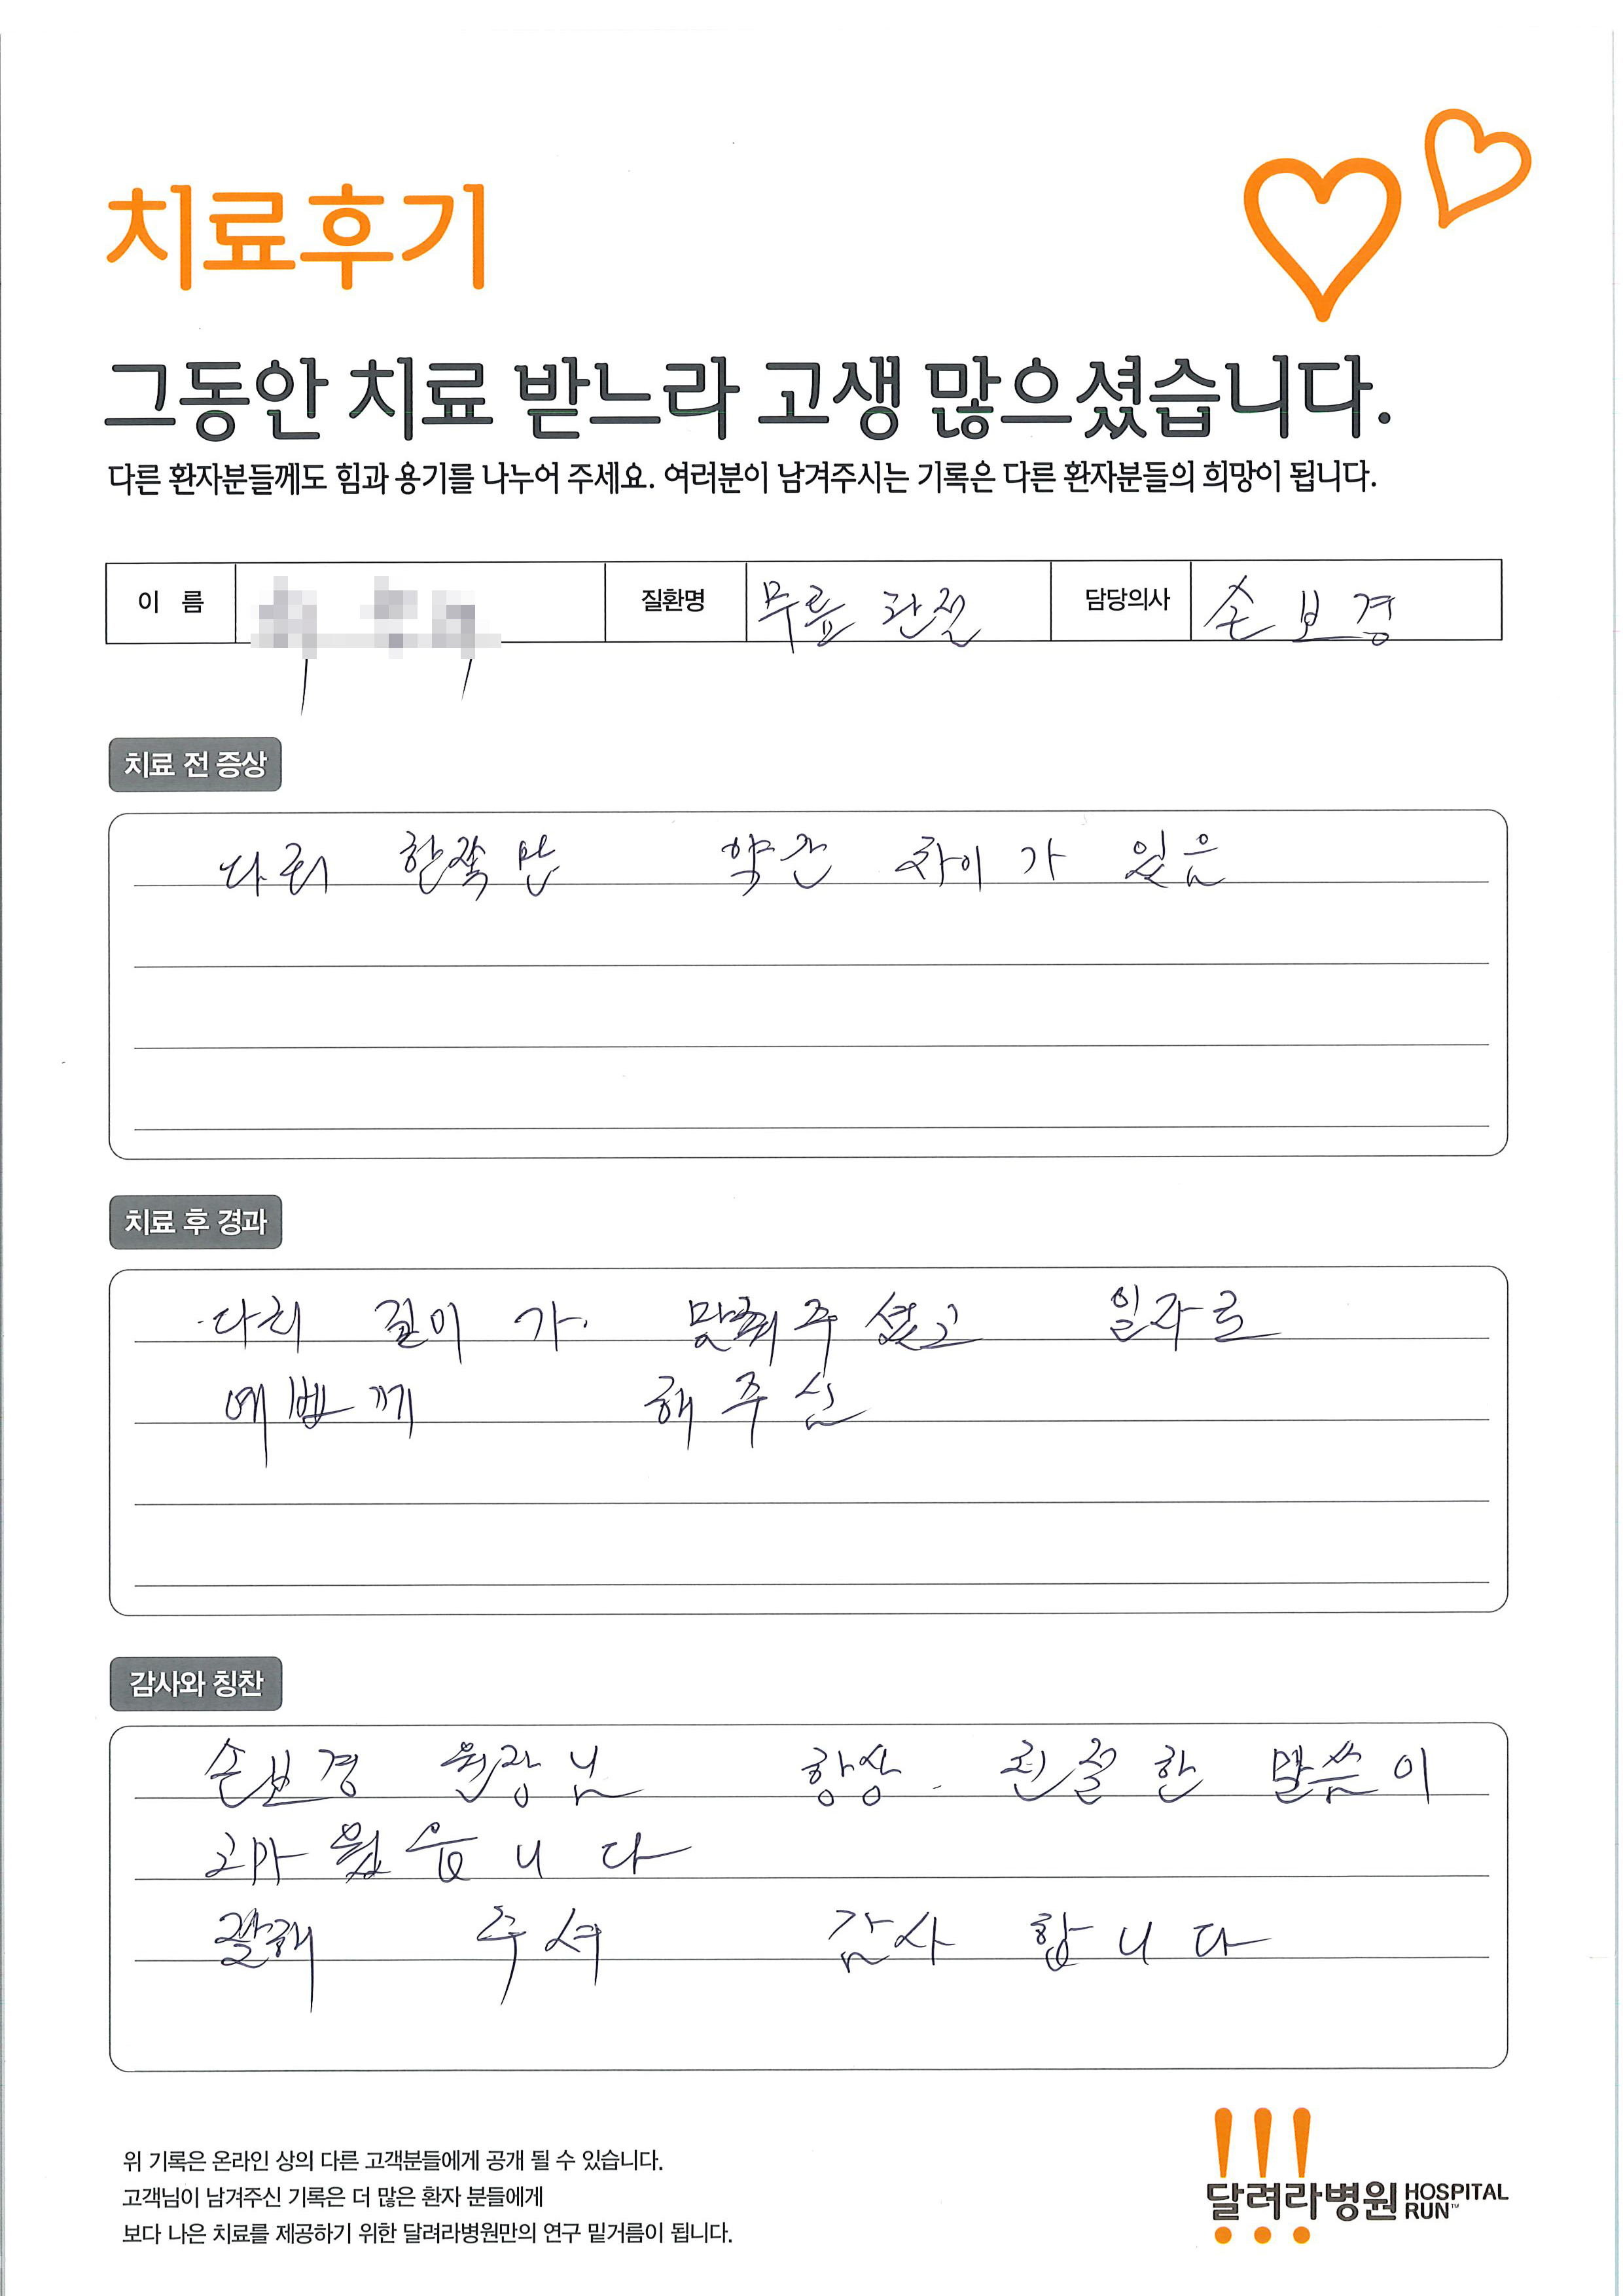 치료후기
그동안 치료 받느라 고생 많으셨습니다.
다른 환자분들께도 힘과 용기를 나누어 주세요. 여러분이 남겨주시는 기록은 다른 환자분들의 희망이 됩니다.
이 름 질환명 무릎 관절 담당의사 손보경
치료 전 증상
다리 한쪽만 약간 차이가 있음
치료 후 경과
다리 길이가. 맞춰주셨고 일자로
예쁘게 해주심
감사와 칭찬
손보경 원장님 항상. 친절한 말씀이
고마웠습니다
잘해 주셔 감사합니다
위 기록은 온라인 상의 다른 고객분들에게 공개 될 수 있습니다.
고객님이 남겨주신 기록은 더 많은 환자 분들에게
보다 나은 치료를 제공하기 위한 달려라병원만의 연구 밑거름이 됩니다.
!!! 달려라병원 HOSPITAL RUN™